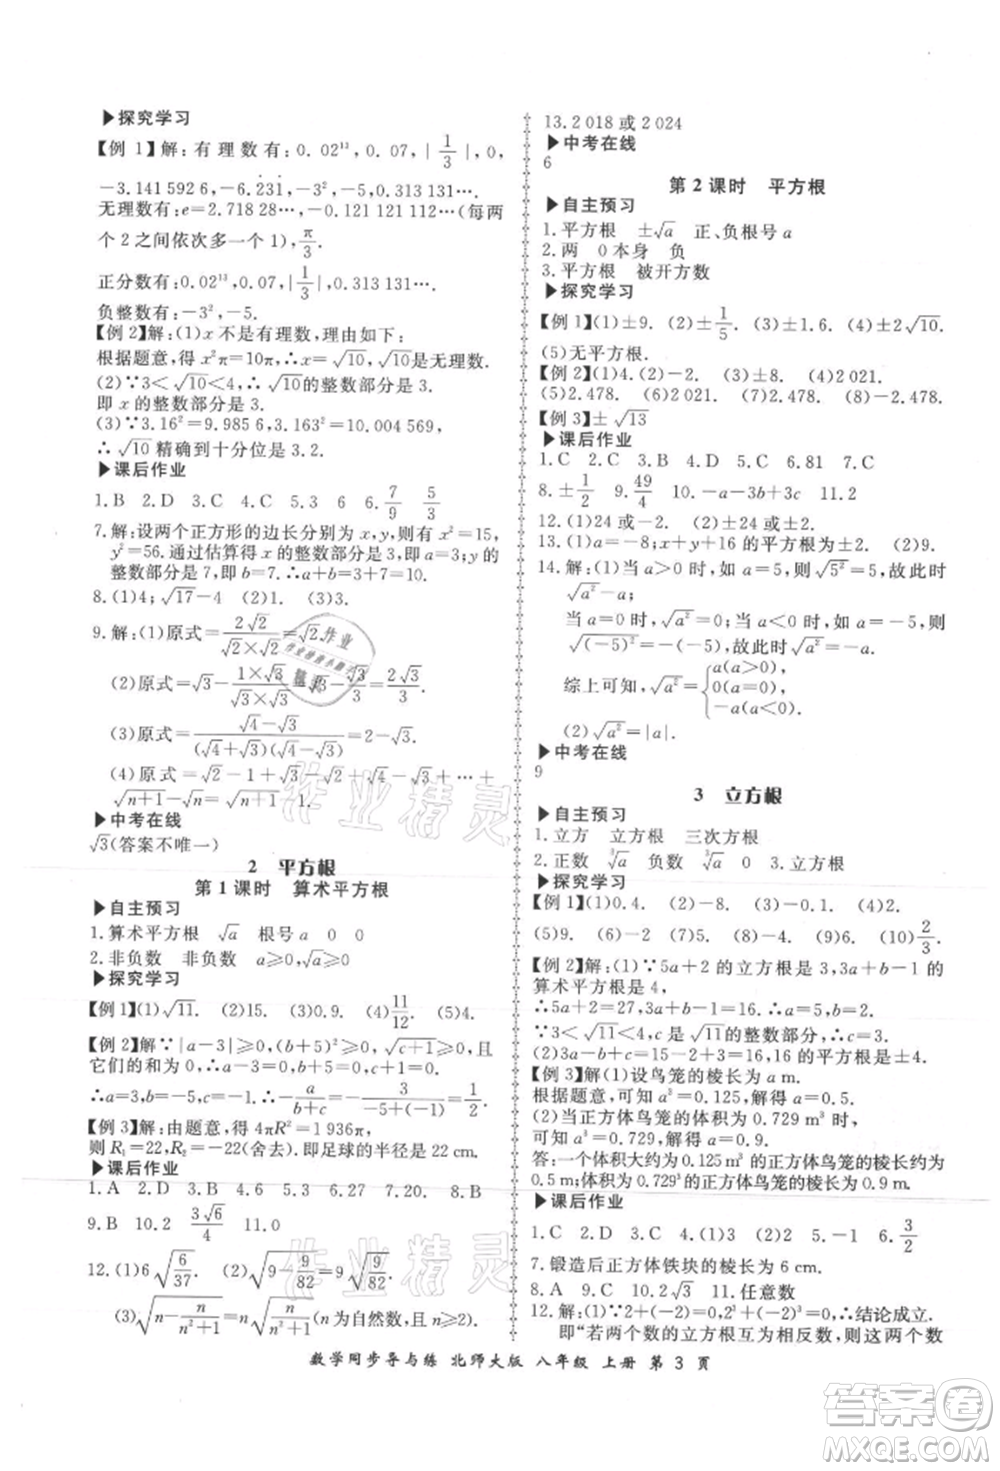 ▶探究学习
【例 1】解:有理数有:0.02¹³,0.07,|1/3|,0,
-3.141 592 6,-6.2̇31̇,-3²,-5.
无理数有:e=2.718 28…,-0.121 121 112…(每两
个 2 之间依次多一个 1),π/3.
正分数有:0.02¹³,0.07,|1/3|,
负整数有:-3²,-5.
【例 2】解:(1)x 不是有理数,理由如下:
根据题意,得 x²π=10π,∴x=√10,是无理数.
(2)∵3<√10<4,∴√10的整数部分是 3.
即 x 的整数部分是 3.
(3)∵3.16²=9.985 6,3.163²=10.004 569,
∴√10精确到十分位是 3.2.
▶课后作业
1.B 2.D 3.C 4.C 5.3 6 6.7/9 5/3
7.解:设两个正方形的边长分别为 x,y,则有 x²=15,
y²=56.通过估算得 x 的整数部分是 3,即 a=3;y 的
整数部分是 7,即 b=7.
8.(1)4;√17-4 (2)1. (3)3.
9.解:(1)原式=2√2/(√2×√2)=√2.
(2)原式=√3-(1×√3)/(√3×√3)
(3)原式=(√4-√3)/((√4+√3)(√4-√3))=2-√3.
(4)原式=√2-1+√3-√2+√4-√3+…+
√(n+1)-√n=√(n+1)-1.
▶中考在线
√3(答案不唯一)
2 平方根
第 1 课时 算术平方根
▶自主预习
1.算术平方根 √a 根号 a 0 0
2.非负数 非负数 a≥0,√a≥0
▶探究学习
【例 1】(1)√11. (2)15. (3)0.9. (4)11/12.
【例 2】解∵|a-3|≥0,(b+5)²≥0,√(c+1)≥0,且
它们的和为 0,∴a-3=0,b+5=0,c+1=0,
∴a=3,b=-5,c=-1,∴-a/(b+c)=-3/(-5-1)=1/2.
【例 3】解:由题意,得 4πR²=1 936π,
则 R₁=22,R₂=-22(舍去).即足球的半径为 22 cm.
▶课后作业
1.A 2.D 3.C 4.B 5.3 6.D 7.20 8.B
9.B 10.2 3√6/4 11.0
12.(1)6√(6/37). (2)√(9-9/82)=9√(9/82).
(3)√(n-n/(n²+1))=n√(n/(n²+1))(n 为自然数,且 n≥2).
13.2 018 或 2 024
▶中考在线
6
第 2 课时 平方根
▶自主预习
1.平方根 ±√a 正、负根号 a
2.两 0 本身 负
3.平方根 被开方数
▶探究学习
【例 1】(1)±9. (2)±1/5. (3)±1.6. (4)±2√10.
(5)无平方根.
【例 2】(1)4.(2)-2. (3)±8. (4)2 021.
(5)2.478. (6)2.021. (7)2.478. (8)-2.478.
【例 3】±√13
▶课后作业
1.C 2.C 3.B 4.D 5.C 6.81 7.C
8.±1/2 9.49/4 10.-a-3b+3c 11.2
12.(1)24 或-4. (2)1 或-2.
13.(1)a=-8;x+y 的平方根为±2. (2)9.
14.解:(1)当 a>0 时,如 a=5,则√5²=5,故此时
√a²=a;
当 a=0 时,√a²=0;当 a<0 时,如 a=-5,则
√(-5)²=-(-5),故此时√a²=-a.
综上可知,√a²={a(a>0) 0(a=0) -a(a<0)
(2)√a²=|a|.
▶中考在线
9
3 立方根
▶自主预习
1.立方 立方根 三次方根
2.正数 ³√a 负数 ³√a 0 0
▶探究学习
【例 1】(1)0.4. (2)-8. (3)-2. (4)2.
(5)9. (6)-3. (7)5. (8)-4. (9)6. (10)2/3.
【例 2】解:(1)∵5a+2 的立方根是 3,3a+b-1 的
算术平方根是 4,
∴5a+2=27,3a+b-1=16,∴a=5,b=2.
∵3<√11<4,c 是√11的整数部分,∴c=3.
(2)3a-b+c=15-2+3=16,16 的平方根是±4.
【例 3】解(1)设鸟笼的棱长为 a m.
根据题意,可知 a³=0.125,∴a=0.5.
(2)∵正方体鸟笼的体积为 0.729 m³,
可知 a³=0.729,∴a=0.9.
答:一个体积大约为 0.125 m³的正方体鸟笼的棱长为
0.5 m;体积为 0.729³的正方体鸟笼的棱长为 0.9 m.
▶课后作业
1.C 2.D 3.B 4.(1)3 (2)2 5.-1 6.3/2
7.锻造后正方体铁块的棱长为 6 cm.
8.A 9.C 10.2√3 11.任意数
12.解:(1)∵2+(-2)=0,2³+(-2)³=0,∴结论成立.
即“若两个数的立方根互为相反数,则这两个数
数学同步导与练 北师大版 八年级 上册 第 3 页
作业精灵
作业精灵
答案圈
MXQE.COM